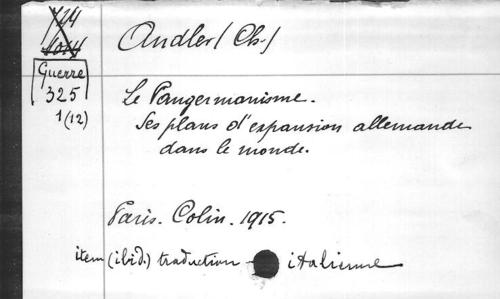 Andler (Ch.)
Guerre
325
1(12)
Le Pangermanisme.
Ses plans d'expansion allemande
dans le monde.
Paris. Colin. 1915.
item (ibid.) traduction italienne